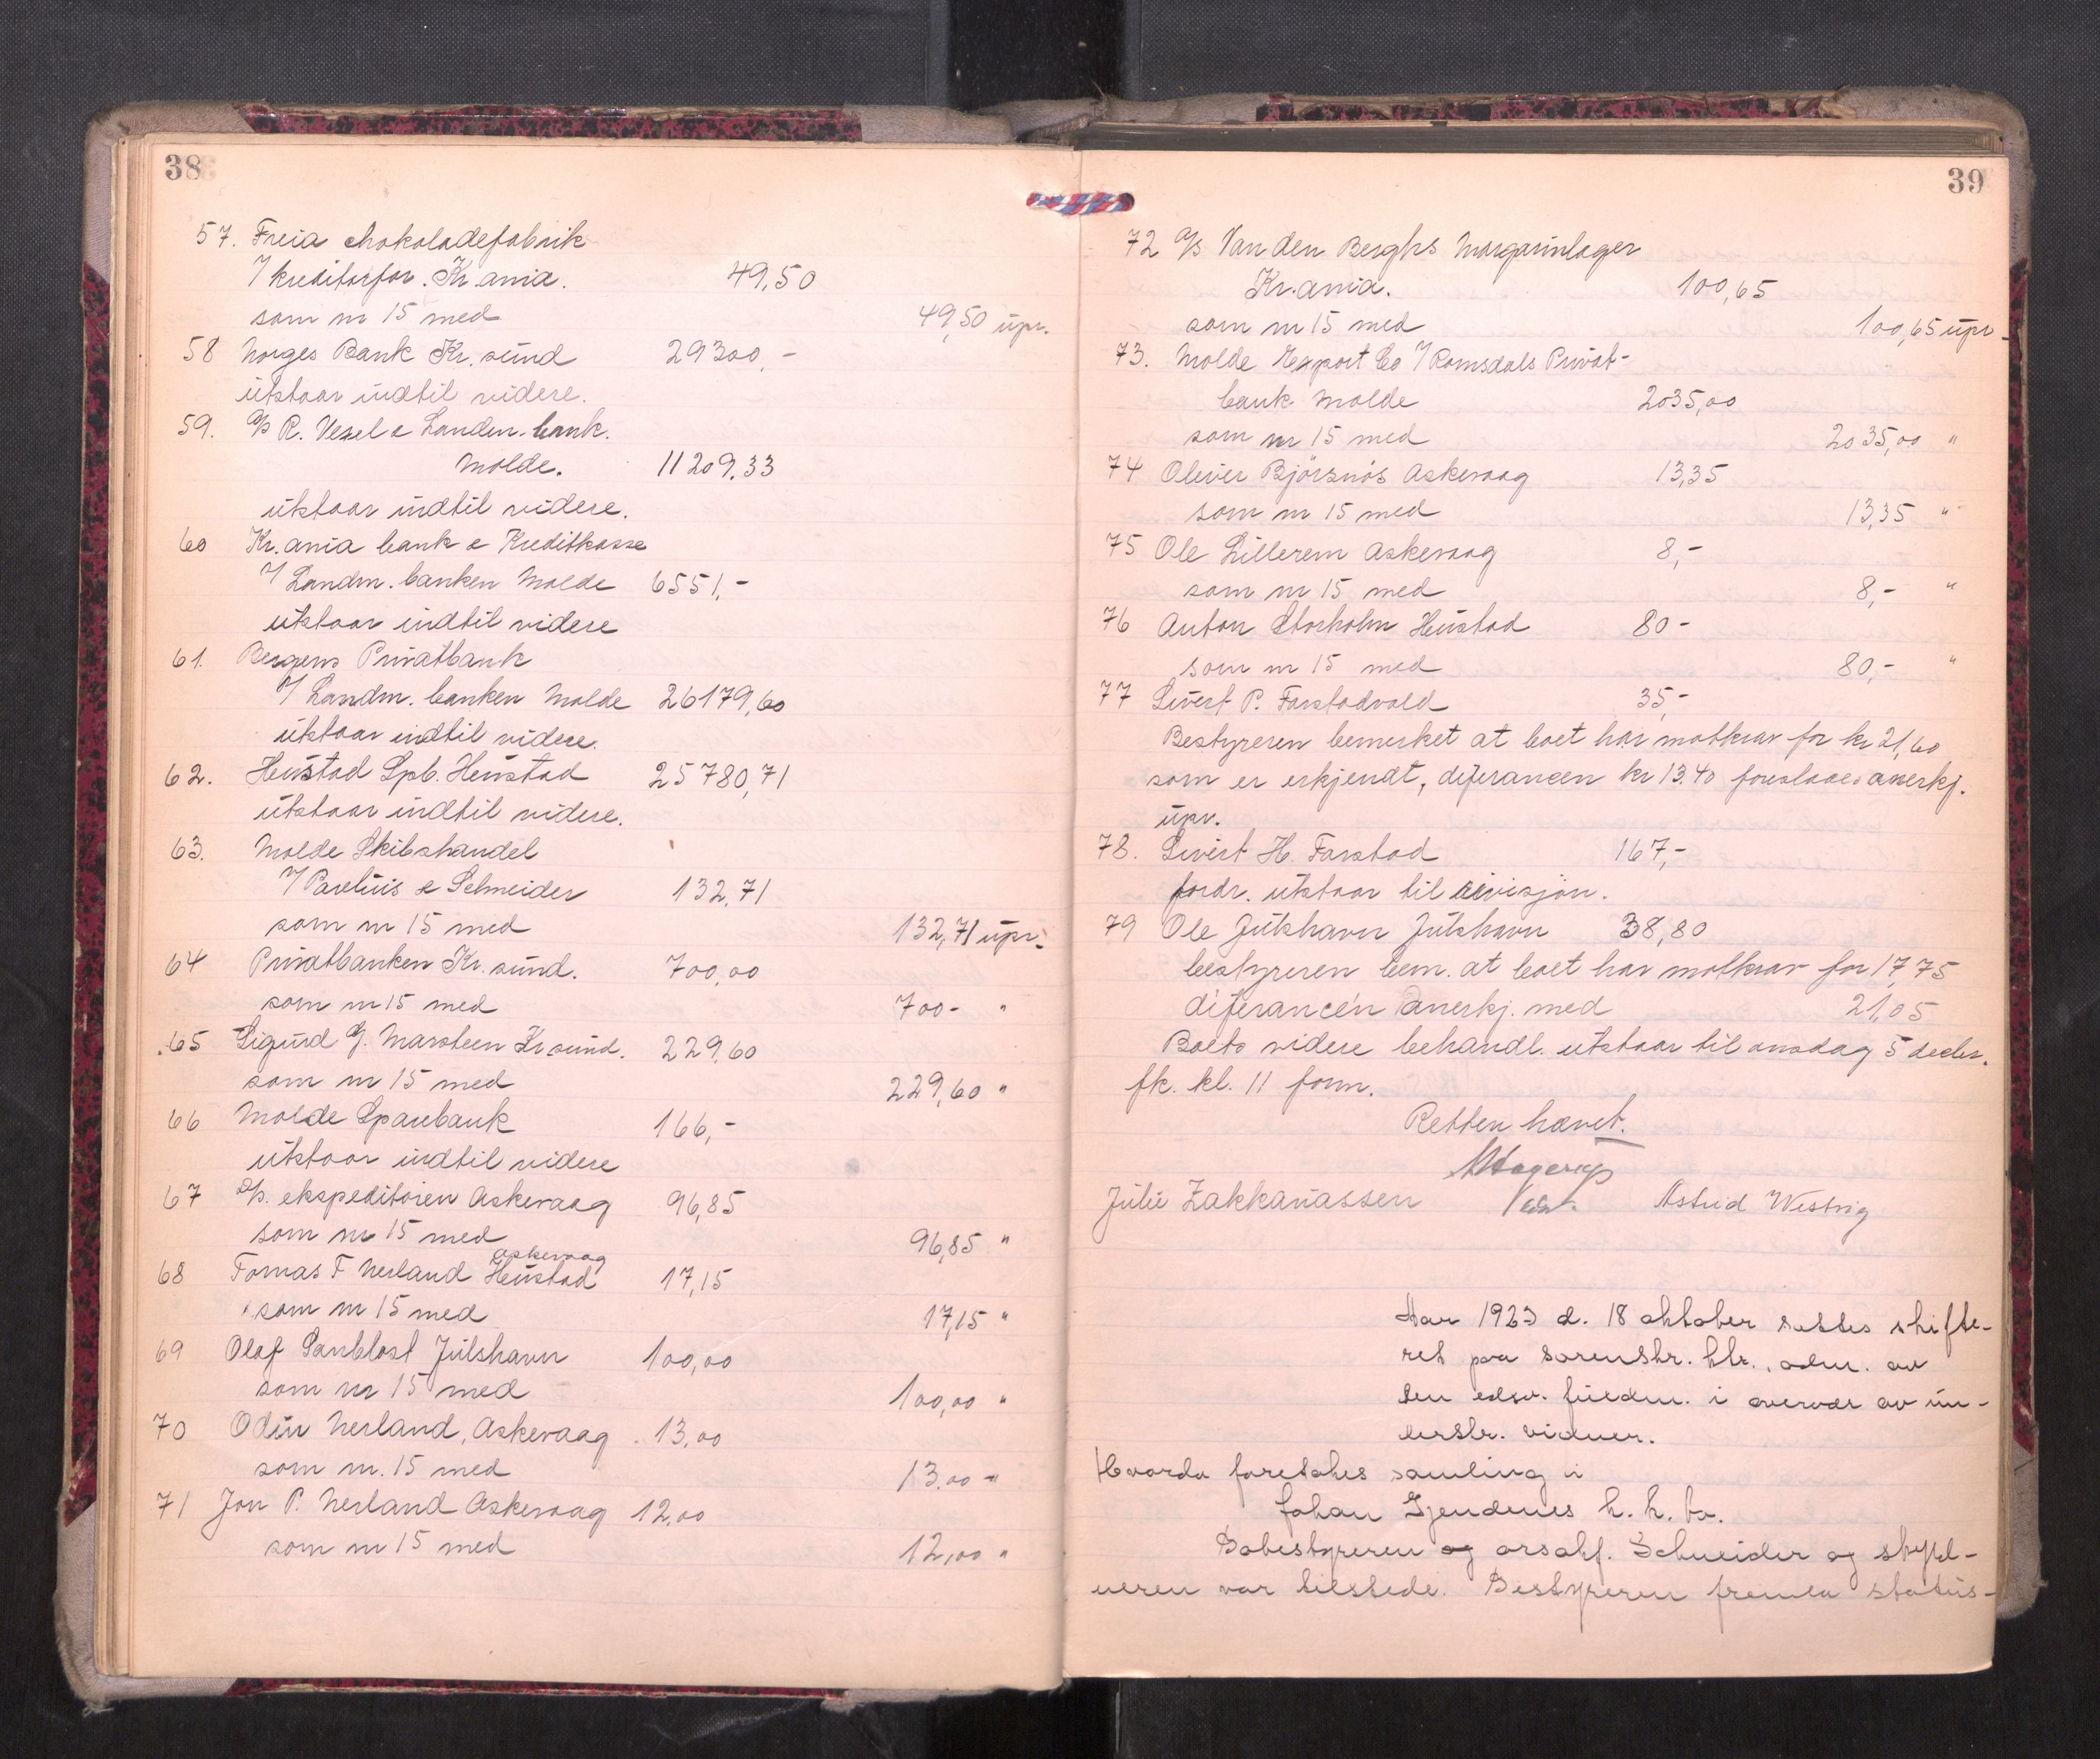 38
57. Freia chokoladefabrik
v/ kreditorfor. Kr.ania. 49,50
som nr 15 med 49,50 upr.
58 Norges Bank Kr.sund 29300,-
utstaar indtil videre.
59. A/s R. Vexel & Landm. bank.
Molde. 11209.33
utstaar indtil videre.
60 Kr.ania bank & Kreditkasse
v/ Landm. banken Molde 6551,-
utstaar indtil videre
61. Bergens Privatbank
v/ Landm. banken Molde 26179,60
utstaar indtil videre.
62. Hustad Spb. Hustad 25780,71
utstaar indtil videre.
63. Molde Skibshandel
v/ Paulius & Schneider 132,71
som nr 15 med 132,71 upr.
64 Privatbanken Kr.sund. 700,00
som nr 15 med 700- "
65 Sigurd G. Marsteen Kr.sund. 229,60
som nr 15 med 229,60 "
66 Molde Sparebank 166,-
utstaar indtil videre
67 D/s. ekspeditoien Askevaag 96,85
som nr 15 med 96,85 "
askevaag
68 Tomas T Nerland Hustad 17,15
som nr 15 med 17,15 "
69 Olaf Sanblost Julshavn 100,00
som nr 15 med 100,00 "
70 Odin Nerland, Askevaag 13,00
som nr. 15 med 13,00 "
71 Jon P. Nerland Askevaag 12,00
som nr 15 med 12,00 "
39
72 A/s Van den Berghs Margarinlager
Kr.ania. 100,65
som nr 15 med 100,65 upr.
73. Molde Export Co v/ Romsdals Privat-
bank Molde 2035,00
som nr 15 med 2035,00 "
74 Oliver Bjørsnøs Askevaag 13,35
som nr 15 med 13,35 "
75 Ole Lillerem Askevaag 8,-
som nr 15 med 8,- "
76 Anton Storholm Hustad 80-
som nr 15 med 80,- "
77 Sivert P. Farstadvold 35,-
Bestyreren bemerket at boet har motkrav for kr 21,60
som er erkjendt, diferancen kr 13.40 foreslaaes anerkj.
upr.
78. Sivert H. Farstad 167,-
fordr. utstaar til divisjon.
79 Ole Julshavn Julshavn 38,80
bestyreren bem. at boet har motkrav for 17,75
diferancen anerkj. med 21,05
Boets videre behandl. utstaar til onsdag 5 decbr.
fk. kl. 11 form.
Retten hævet.
Hagerup
Julie Zakkariassen Astrid Westvig
Aar 1923 d. 18 oktober sattes skifte-
ret paa sorenskr. ktr., adm. av
den edsv. fuldm. i overvær av un-
derskr. vidner.
Hvorda foretokes samling i
Johan Gjendemes k. k. bo.
Bobestyreren og orsakf. Schneider og skyld-
neren var tilstede. Bestyreren fremla status-